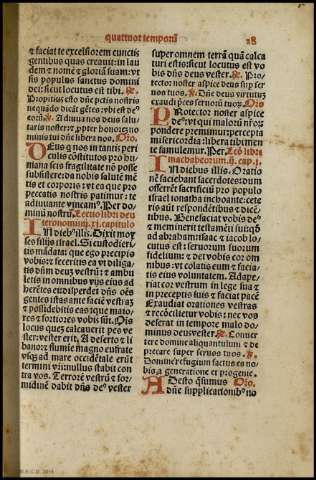 quattuor temporū
28
et faciat te excelsiorem cunctis
gentibus quas creauit: in lau
dem et nomē et gloriā suam: vt
sis populus sanctus domini
dei: sicut locutus est tibi.
Propitius esto dn̄e pctīs nostris
ne quādo dicāt gētes: vbi est de⁹
eorū. Adiuua nos deus salu
taris noster et ppter honorē no
minis tui dn̄e libera nos. Oro.
Deus q nos in tantis peri
culis constitutos pro hu
mana scis fragilitate nō posse
subsistere: da nobis salutē mē
tis et corporis: vt ea que pro
peccatis nostris patimur: te
adiuuante vincam⁹. Per do
minū nostrū. Lectio libri deu
teronomij. xj. capitulo.
In dieb⁹ illis. Dixit moy
ses filijs israel. Si custodieri
tis mādata: que ego precipio
vobis et feceritis ea vt diliga
tis dn̄m deuz vestrū: et ambu
letis in omnibus vijs eius ad
herētes ei: disperdet dn̄s oēs
gentes istas ante faciē vestrā: et
possidebitis eas que maio
res et fortiores vobis sūt. Ois
locus quez calcauerit pes ve
ster: vester erit. A deserto et li
bano et flumine magno eufrate
vsqz ad mare occidētale erūt
termini vri: nullus stabit con
tra vos. Terrorē vestrū et for
midinē dabit dn̄s de⁹ vester
super omnem terrā quā calca
turi estis: sicut locutus est vo
bis dn̄s deus vester. Pro
tector noster aspice deus et respice sup ser
uos tuos. Dn̄e deus virtutū
exaudi pces seruorū tuoꝝ. Oro
Protector noster aspice
de⁹: vt qui malorū nr̄oꝝ
pondere premimur: percepta
misericordia: libera tibi men
te famulemur. Per. Lectio libri
machabeorum. ij. cap. j.
In diebus illis. Oratio
nē faciebant sacerdotes: dum
offerrēt sacrificiū pro populo
israel ionatha inchoante: cete
ris aūt respondētibus et dicē
tibus. Benefaciat vobis de⁹
et meminerit testamēti sui: qd
ad abraam et isaac et iacob lo
cutus est seruorum suorum
fidelium: et det vobis cor om
nibus: vt colatis eum et facia
tis eius voluntatem. Adape
riat cor vestrum in lege sua et
in preceptis suis et faciat pacē
Exaudiat orationes vestras
et recōcilietur vobis: nec vos
deserat in tempore malo do
minus deus vester. Conuer
tere domine aliquantulum et de
precare super seruos tuos.
Domine refugium factus es no
bis a generatione et progenie.
Adesto qsumus Oro.
dn̄e supplicationib⁹ no